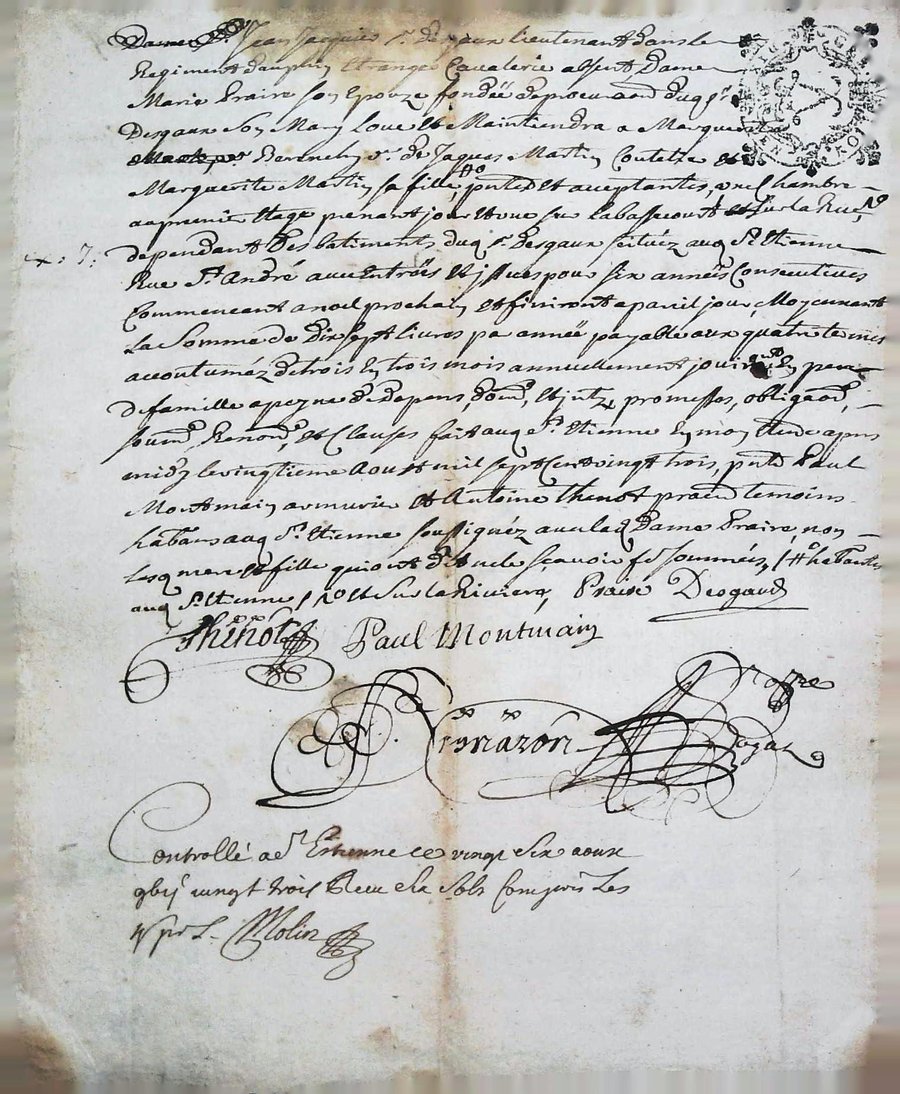 Dame Sr Jean Jacques Sr desgaux lieutenant dans le
Regiment dauphin Etranger Cavalerie absent Dame
Marie Praire son Epouze fondée de procuaon dud Sr
Desgaux son Mary Loue et Maintiendra a Marguerite
Berenchy ve de Jaques Martin Coutelze et
Marguerite Martin sa fille pntes et acceptantes, une Chambre
au premier Etage prenant jour et vue sur la bassecourt et sur la Rue,
dependant des batiments dud Sr desgaux scituéz aud St Etienne
Rue St André avec Entréës et jssues pour six années Consecutives
Commencant a noel prochain et finiront a pareil jour, Moyennant
La Somme de dix sept livres par année payable aux quatre termes
accoutuméz de trois En trois mois annuellement En pere
de famille a peyne de depens, dom, et jntz, promesses, obligaons,
soumons, Renonons, et Clauses fait aud St Etienne En mon Etude apres
midy le vingtieme Aoust mil sept Cent vingt trois, pnts Paul
Montmain armurier et Antoine thinot praticn temoins
habants aud St Etienne soussignéz avec lad Dame Praire, non
Lesd mere et fille qui ont dit ne le sçavoir fe sommées, /# habantes
aud St Etienne / et sur la Riviere, Praire Desgaux
Thinot Paul Montmain
Notre
Royal
Controllé a St Etienne ce vingt six aoust
gbij vingt trois Receu Sols Compris les
4s pr L. Molin
x : 7 :